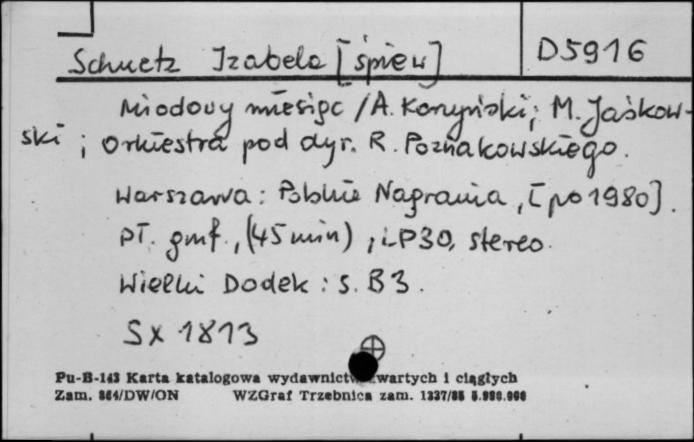 Schuetz Izabela [śpiew]
D5916
Miodowy miesiąc /A. Korzyński; M. Jaśkow-
ski ; Orkiestra pod dyr. R. Poznakowskiego.
Warszawa : Polskie Nagrania, [po 1980].
Pł. gmf., (45 min), LP30, stereo.
Wielki Dodek : s. B3.
SX 1813
Pu-B-143 Karta katalogowa wydawnictw zwartych i ciągłych
Zam. 864/DW/ON WZGraf Trzebnica zam. 1337/85